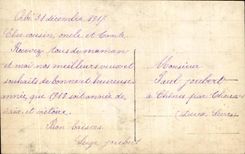 31 décembre 1917
Cher cousin, oncle et tante
maman
et moi nos meilleurs vœux et
souhaits de bonne et heureuse
année que 1918 soit année de
paix et victoire.
Bon baisers
Serge Joubert
Monsieur
Paul Joubert
à
par
Deux Sèvres